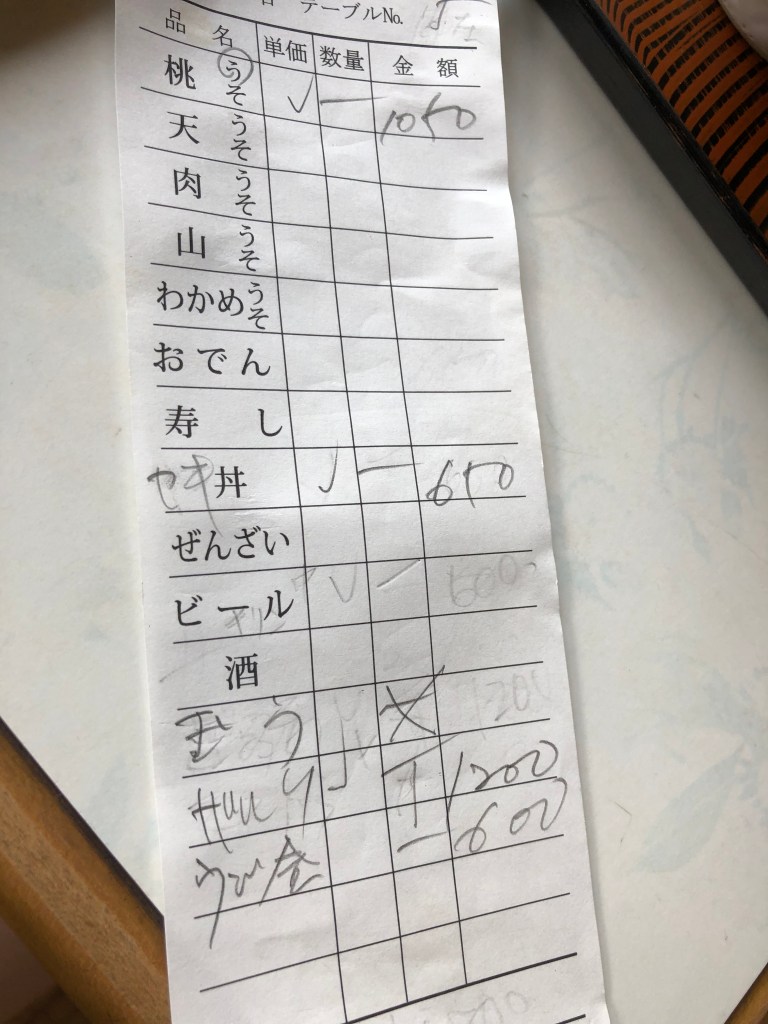 テーブルNo.
品名 単価 数量 金額
桃 うそ 一 1050
天 うそ
肉 うそ
山 うそ
わかめ うそ
おでん
寿し
セキ丼 一 650
ぜんざい
ビール キリン 一 600
酒
1200
1200
一 600